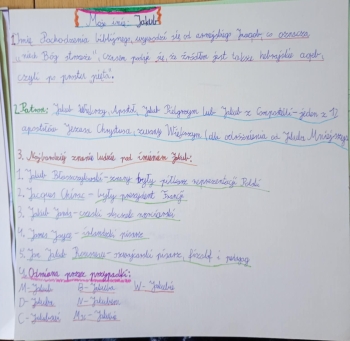 Moje imię: Jakub
1. Imię Pochodzenia biblijnego, wywodzi się od
"niech Bóg strzeże". Czasem podaje się, że źródłem jest także hebrajskie
czyli po prostu pięta".
2. Patron: Jakub Większy, Apostoł, Jakub Pielgrzym lub Jakub z Composteli - jeden z 12
apostołów Jezusa Chrystusa, zwany Większym (dla odróżnienia od Jakuba Mniejszego
3. Najbardziej znane ludzie pod imieniem Jakub:
1. Jakub Błaszczykowski - znany były piłkarz reprezentacji Polski
2. Jacques Chirac - były prezydent Francji
3. Jakub
4. James Joyce - irlandzki pisarz
5. Jan Jakub Rousseau - pisarz, filozof i pedagog
4. Odmiana przez przypadki:
M - Jakub B - Jakuba W - Jakubie
D - Jakuba N - Jakubem
C - Jakubowi Ms - Jakubie